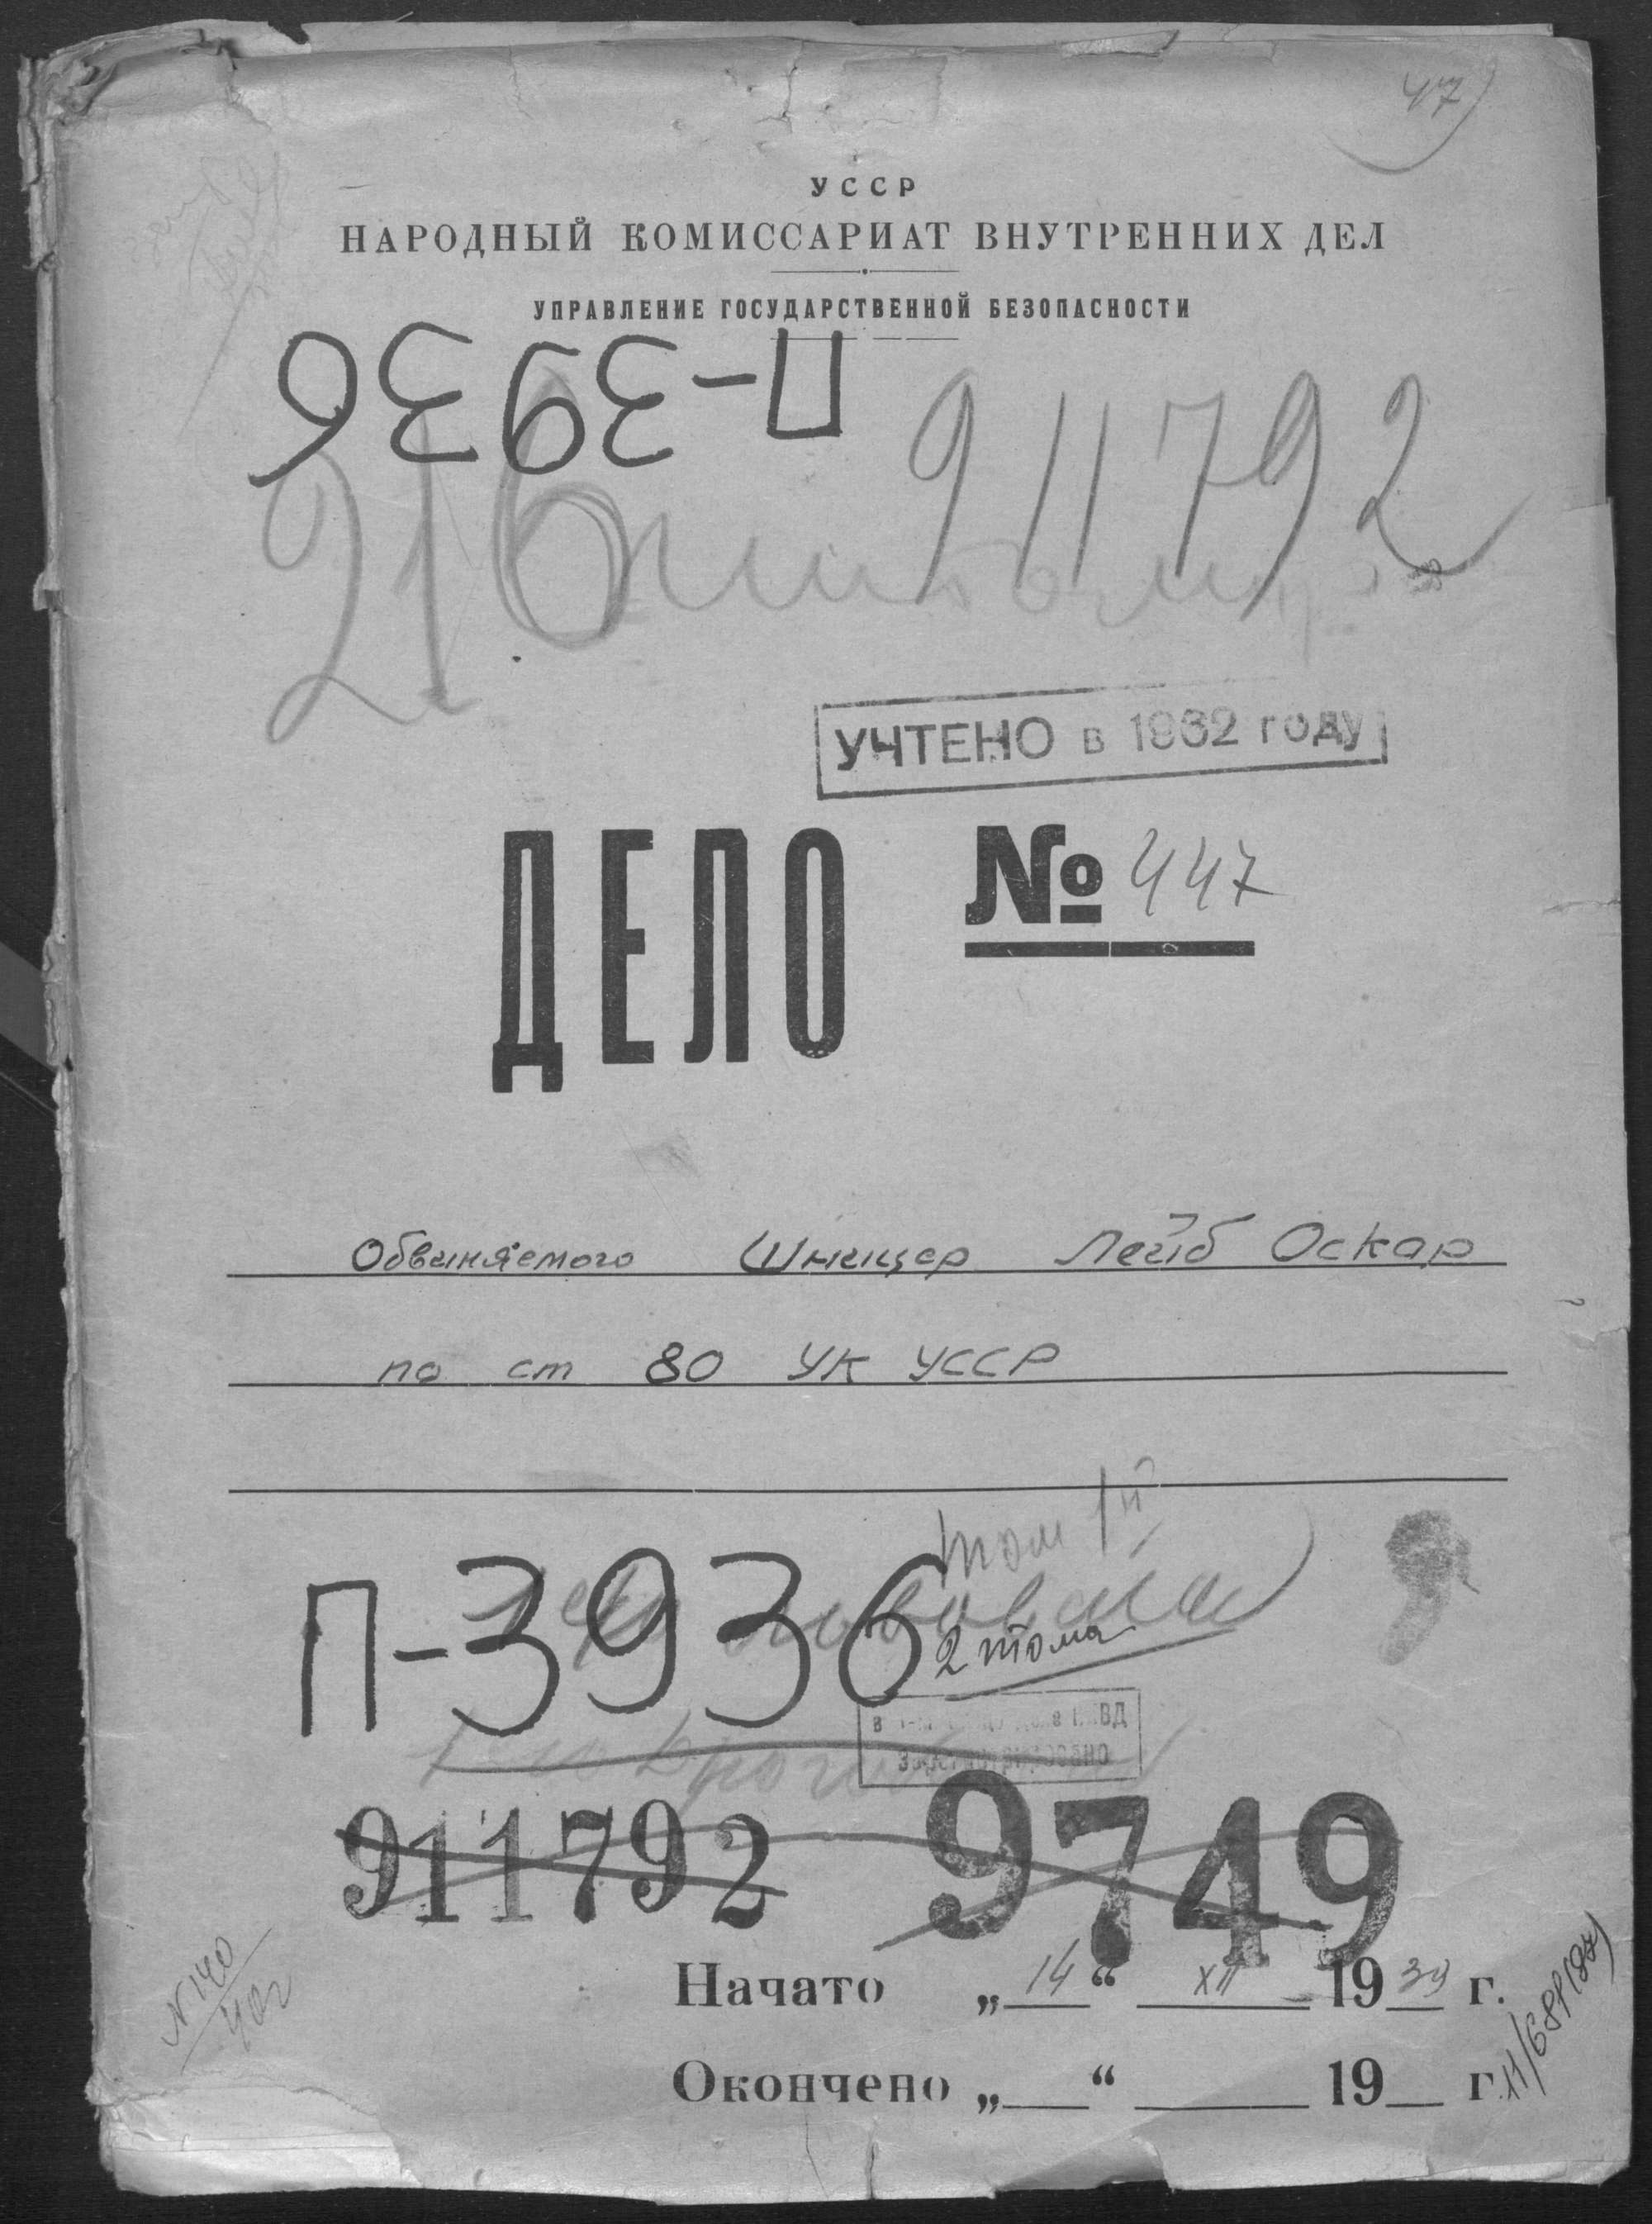 47
УССР
НАРОДНЫЙ КОМИССАРИАТ ВНУТРЕННИХ ДЕЛ
УПРАВЛЕНИЕ ГОСУДАРСТВЕННОЙ БЕЗОПАСНОСТИ
П-3936
911792
216
УЧТЕНО в 1962 году
ДЕЛО № 447
Обвиняемого Шницер Лейб Оскар
по ст 80 УК УССР
том 1й
П-3936
2 тома
911792 9749
Начато „14“ XII 1939 г.
Окончено „ “ 19 г.
N 140